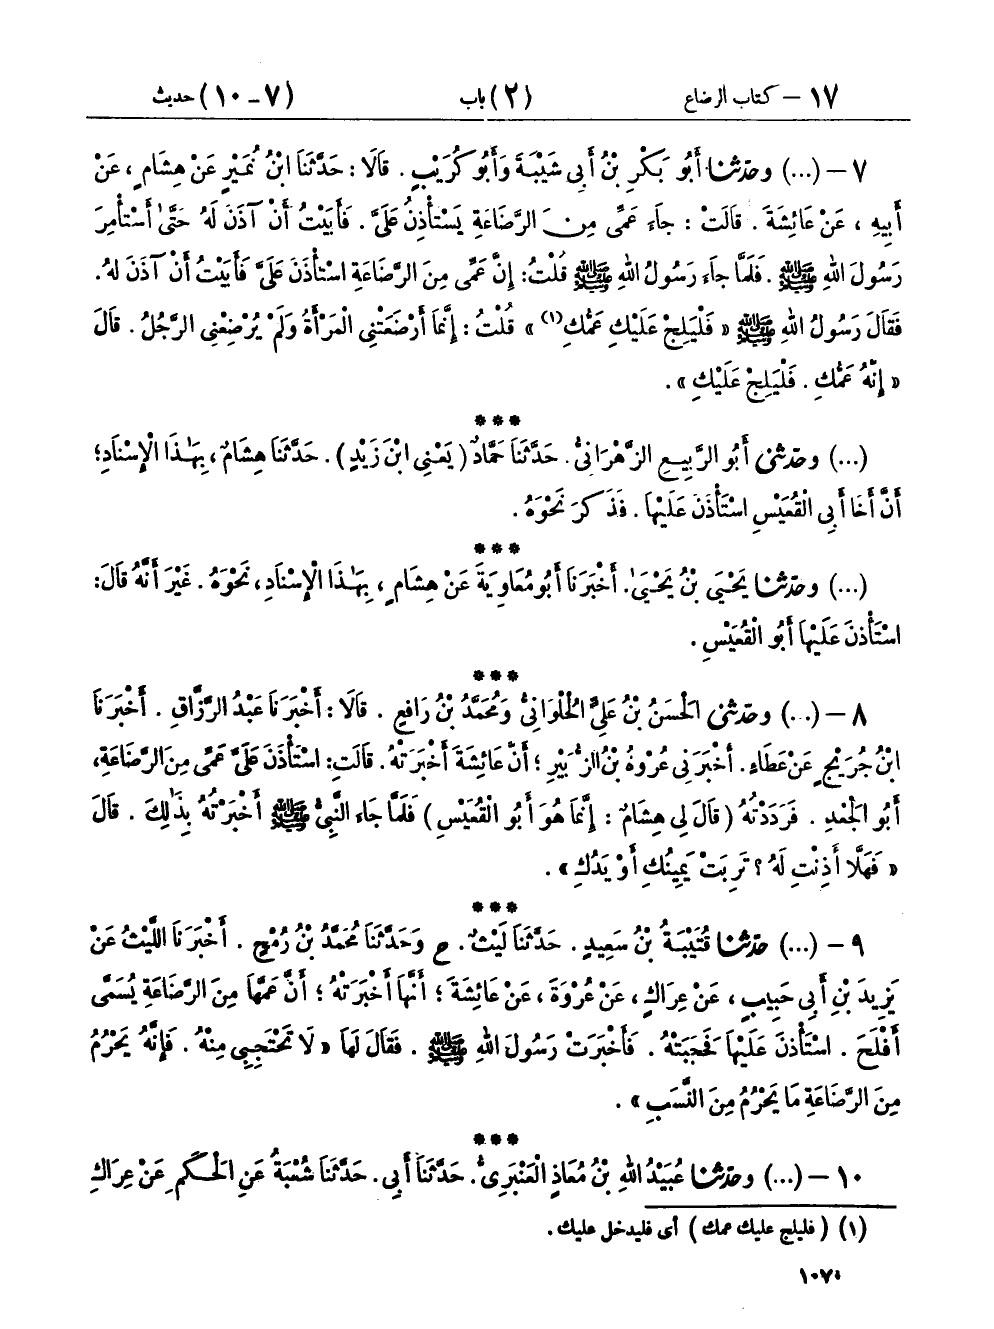 ١٧ – كتاب الرضاع (٢) باب (٧-١٠) حديث
٧ – (...) وحَدَّثَنَا أَبُو بَكْرِ بْنُ أَبِي شَيْبَةَ وَأَبُو كُرَيْبٍ . قَالَا : حَدَّثَنَا ابْنُ نُمَيْرٍ عَنْ هِشَامٍ ، عَنْ
أَبِيهِ ، عَنْ عَائِشَةَ . قَالَتْ : جَاءَ عَمِّى مِنَ الرَّضَاعَةِ يَسْتَأْذِنُ عَلَىَّ . فَأَبَيْتُ أَنْ آذَنَ لَهُ حَتَّىٰ أَسْتَأْمِرَ
رَسُولَ اللهِ ﷺ . فَلَمَّا جَاءَ رَسُولُ اللهِ ﷺ قُلْتُ : إِنَّ عَمِّى مِنَ الرَّضَاعَةِ اسْتَأْذَنَ عَلَىَّ فَأَبَيْتُ أَنْ آذَنَ لَهُ.
فَقَالَ رَسُولُ اللهِ ﷺ « فَلْيَلِجْ عَلَيْكِ عَمُّكِ(١) » قُلْتُ : إِنَّمَا أَرْضَعَتْنِى الْمَرْأَةُ وَلَمْ يُرْضِعْنِى الرَّجُلُ . قَالَ
« إِنَّهُ عَمُّكِ . فَلْيَلِجْ عَلَيْكِ » .
***
(...) وحَدَّثَنِى أَبُو الرَّبِيعِ الزَّهْرَانِىُّ. حَدَّثَنَا حَمَّادٌ ( يَعْنِى ابْنَ زَيْدٍ ) . حَدَّثَنَا هِشَامٌ ، بِهَٰذَا الْإِسْنَادِ ؛
أَنَّ أَخَا أَبِى الْقُعَيْسِ اسْتَأْذَنَ عَلَيْهَا . فَذَكَرَ نَحْوَهُ .
***
(...) وحَدَّثَنَا يَحْيَىٰ بْنُ يَحْيَىٰ. أَخْبَرَنَا أَبُو مُعَاوِيَةَ عَنْ هِشَامٍ ، بِهَٰذَا الْإِسْنَادِ ، نَحْوَهُ . غَيْرَ أَنَّهُ قَالَ :
اسْتَأْذَنَ عَلَيْهَا أَبُو الْقُعَيْسِ .
***
٨ – (...) وحَدَّثَنِى الْحَسَنُ بْنُ عَلِىٍّ الْحُلْوَانِىُّ وَمُحَمَّدُ بْنُ رَافِعٍ . قَالَا : أَخْبَرَنَا عَبْدُ الرَّزَّاقِ . أَخْبَرَنَا
ابْنُ جُرَيْجٍ عَنْ عَطَاءٍ. أَخْبَرَنِى عُرْوَةُ بْنُ الزُّبَيْرِ ؛ أَنَّ عَائِشَةَ أَخْبَرَتْهُ . قَالَتِ : اسْتَأْذَنَ عَلَىَّ عَمِّى مِنَ الرَّضَاعَةِ ،
أَبُو الْجَعْدِ . فَرَدَدْتُهُ ( قَالَ لِى هِشَامٌ : إِنَّمَا هُوَ أَبُو الْقُعَيْسِ ) فَلَمَّا جَاءَ النَّبِىُّ ﷺ أَخْبَرْتُهُ بِذَٰلِكَ . قَالَ
« فَهَلَّا أَذِنْتِ لَهُ ؟ تَرِبَتْ يَمِينُكِ أَوْ يَدُكِ » .
***
٩ – (...) حَدَّثَنَا قُتَيْبَةُ بْنُ سَعِيدٍ . حَدَّثَنَا لَيْثٌ. ح وَحَدَّثَنَا مُحَمَّدُ بْنُ رُمْحٍ . أَخْبَرَنَا اللَّيْثُ عَنْ
يَزِيدَ بْنِ أَبِى حَبِيبٍ ، عَنْ عِرَاكٍ ، عَنْ عُرْوَةَ ، عَنْ عَائِشَةَ ؛ أَنَّهَا أَخْبَرَتْهُ ؛ أَنَّ عَمَّهَا مِنَ الرَّضَاعَةِ يُسَمَّى
أَفْلَحَ . اسْتَأْذَنَ عَلَيْهَا فَحَجَبَتْهُ . فَأَخْبَرَتْ رَسُولَ اللهِ ﷺ . فَقَالَ لَهَا « لَا تَحْتَجِبِى مِنْهُ . فَإِنَّهُ يَحْرُمُ
مِنَ الرَّضَاعَةِ مَا يَحْرُمُ مِنَ النَّسَبِ » .
***
١٠ – (...) وحَدَّثَنَا عُبَيْدُ اللهِ بْنُ مُعَاذٍ الْعَنْبَرِىُّ. حَدَّثَنَا أَبِى. حَدَّثَنَا شُعْبَةُ عَنِ الْحَكَمِ عَنْ عِرَاكِ
(١) ( فليلج عليك عمك ) أى فليدخل عليك .
١٠٧٠